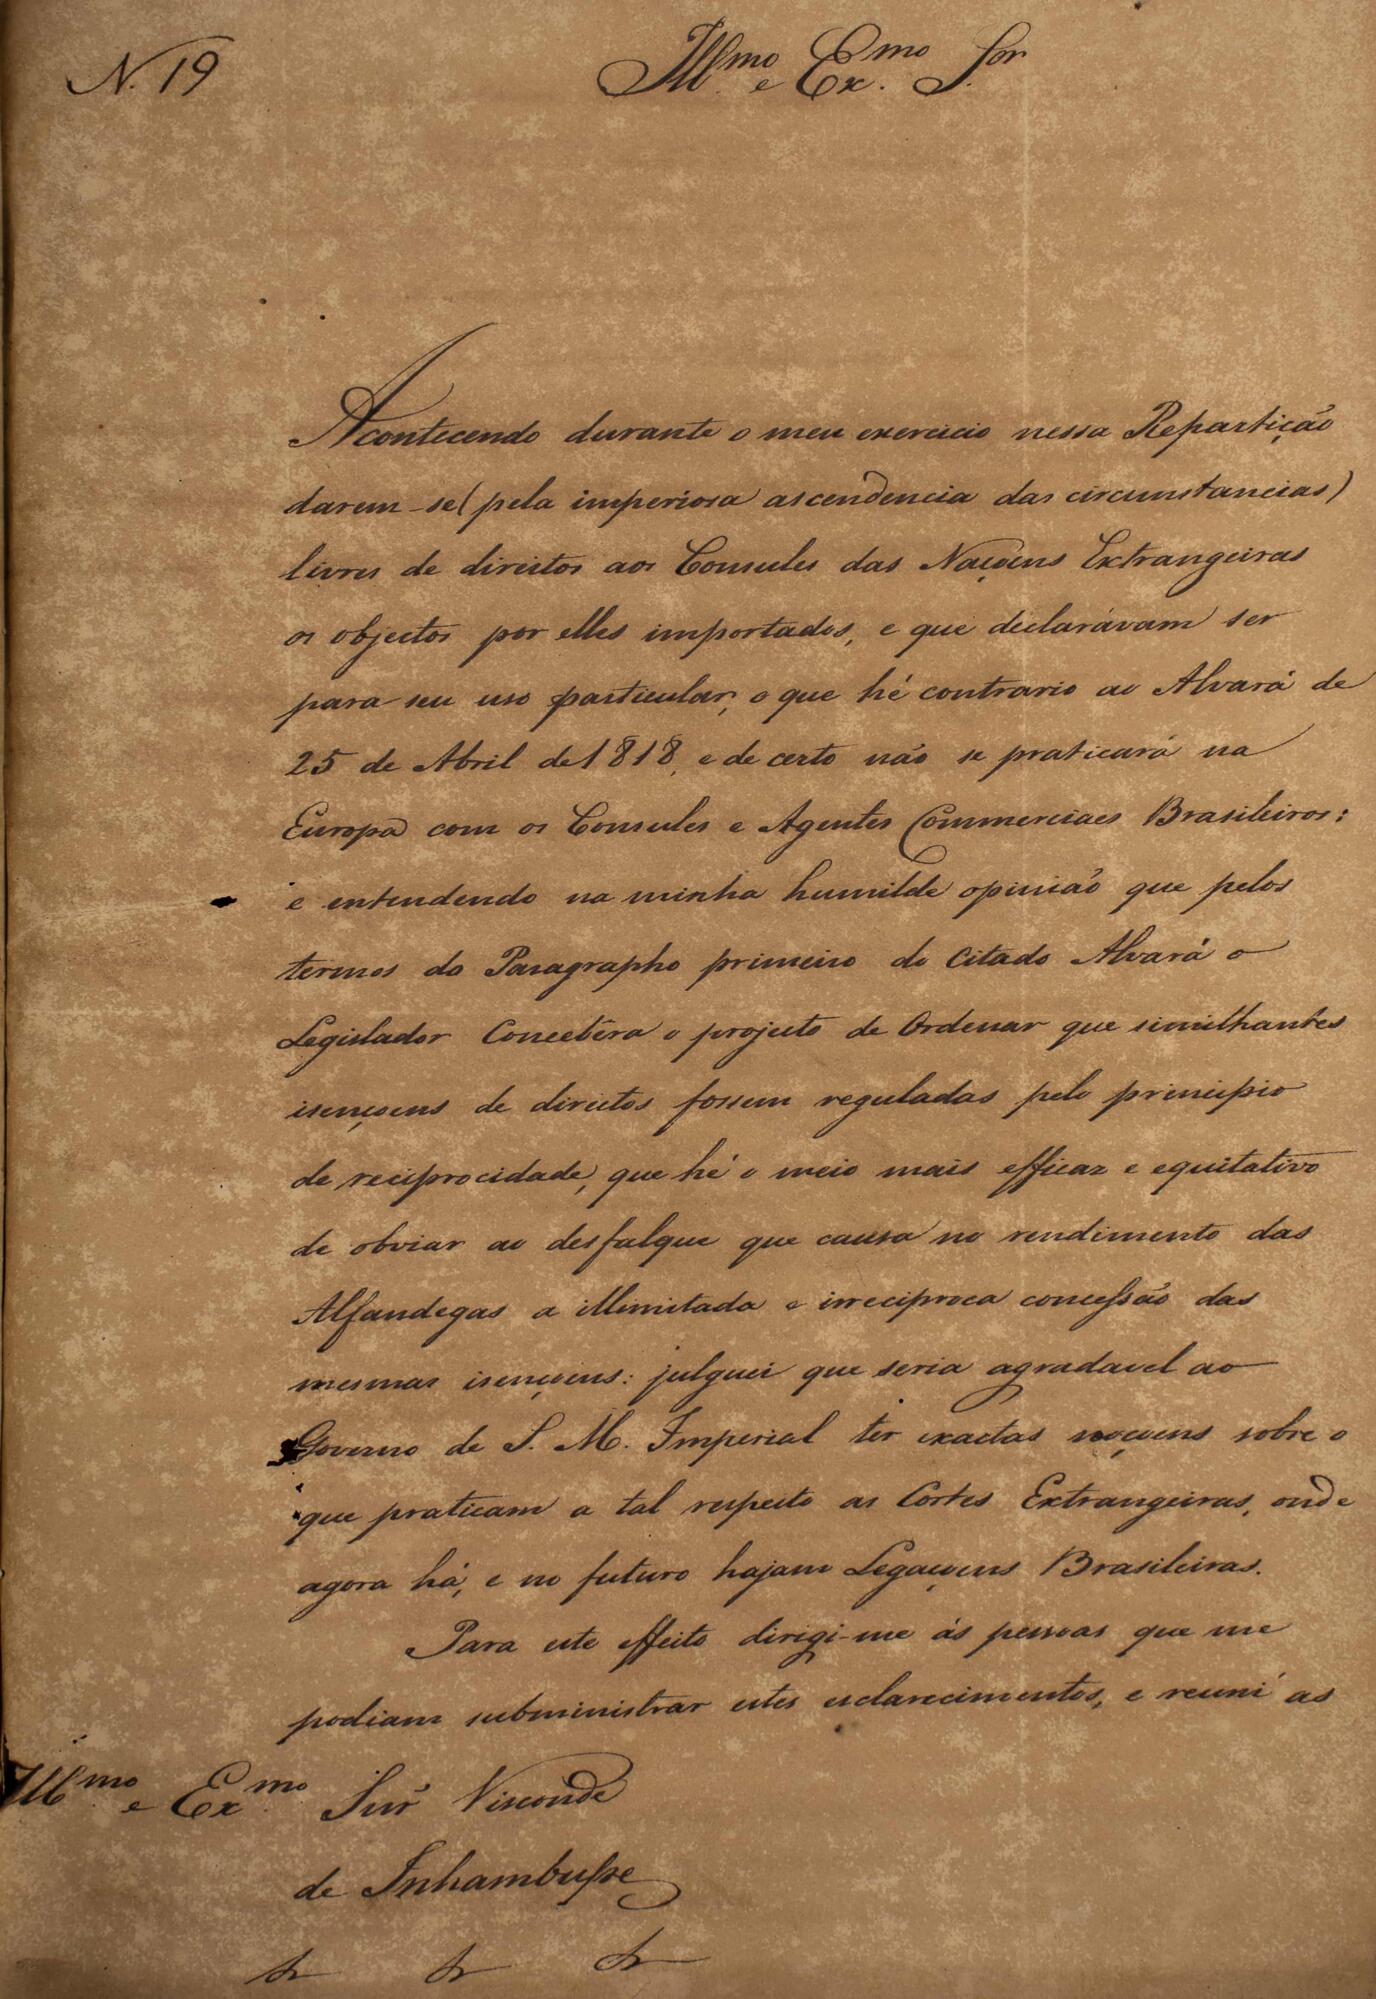 N. 19
Ill.mo e Ex.mo S.or
Acontecendo durante o meu exercicio nessa Repartição
darem-se (pela imperiosa ascendencia das circumstancias)
livres de direitos aos Consules das Naçoens Extrangeiras
os objectos por elles importados, e que declarávam ser
para seu uso particular, o que hé contrario ao Alvará de
25 de Abril de 1818, e de certo não se praticará na
Europa com os Consules e Agentes Commerciaes Brasileiros:
e entendendo na minha humilde opinião que pelos
termos do Paragrapho primeiro do Citado Alvará o
Legislador Concebêra o projecto de Ordenar que similhantes
isençoens de direitos fossem reguladas pelo principio
de reciprocidade, que hé o meio mais efficaz e equitativo
de obviar ao desfalque que causa no rendimento das
Alfandegas a illimitada e irreciproca concessão das
mesmas isençoens: julguei que seria agradavel ao
Governo de S. M. Imperial ter exactas noçoens sobre o
que praticam a tal respeito as Cortes Extrangeiras, onde
agora há, e no futuro hajam Legaçoens Brasileiras.
Para este effeito dirigi-me ás pessoas que me
podiam subministrar estes esclarecimentos, e reuni as
Ill.mo e Ex.mo Snr̃ Visconde
de Inhambuppe